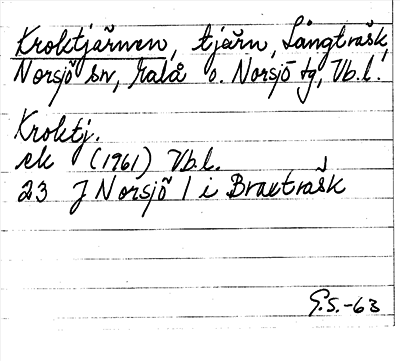 Kroktjärnen, tjärn, Långträsk,
Norsjö sn, Malå o. Norsjö tg, Vb.l.
Kroktj.
ek (1961) Vb.l.
23 J Norsjö 1 i Braxträsk
G.S.-63